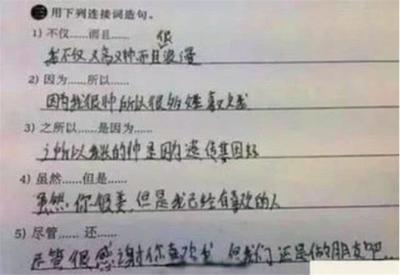 三 用下列连接词造句。
1) 不仅……而且……
我不仅又高又帅而且很浪漫
2) 因为……所以……
因为我很帅所以很多女生喜欢我
3) 之所以……是因为……
之所以我长的帅是因为遗传基因好
4) 虽然……但是……
虽然你很美,但是我已经有喜欢的人
5) 尽管……还……
尽管很感谢你喜欢我 但我们还是做朋友吧..